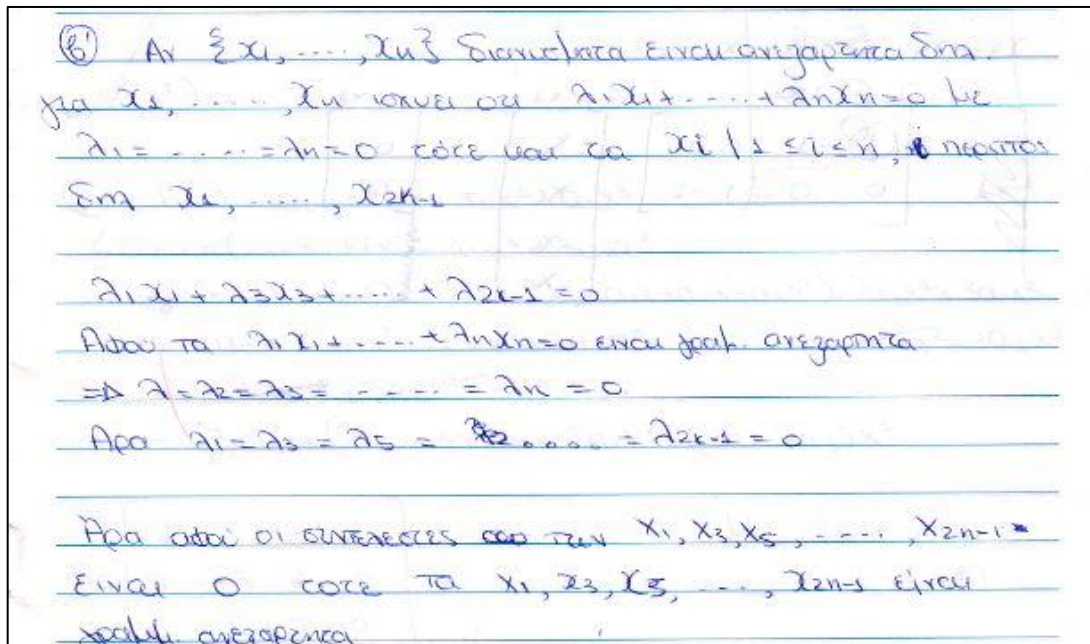 β' Αν {x1, ....., xn} διανύσματα είναι ανεξάρτητα δηλ.
για x1, ....., xn ισχύει οτι λ1x1+.....+λnxn=0 με
λ1= ..... =λn=0 τότε και τα xi | 1 ≤ i ≤ n, i περιττοι
δηλ x1, ....., x2κ-1
λ1x1+λ3x3+.....+λ2κ-1=0
Αφου τα λ1x1+.....+λnxn=0 ειναι γραμ. ανεξαρτητα
=> λ=λ2=λ3= ..... = λn = 0
Αρα λ1=λ3=λ5= .... =λ2κ-1=0
Άρα αφού οι συντελεστες των x1, x3, x5, ....., x2n-1
ειναι 0 τοτε τα x1, x3, x5, ..., x2n-1 είναι
γραμμ. ανεξαρτητα